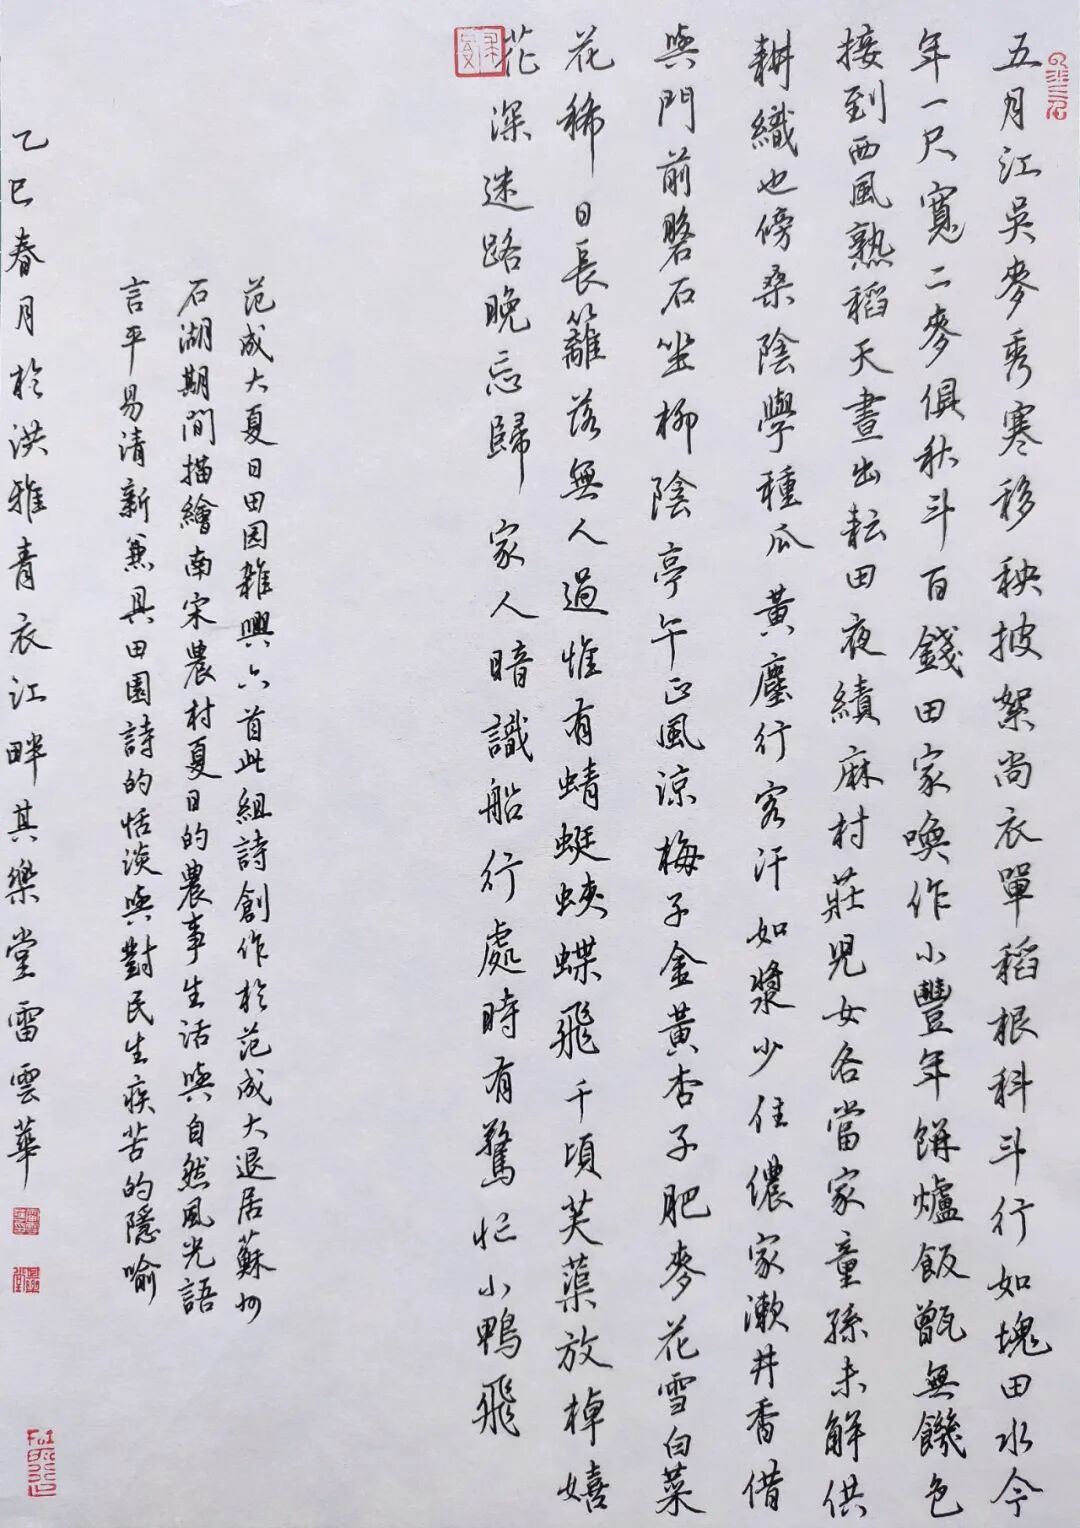 五月江吳麥秀寒移秧披絮尚衣單稻根科斗行如塊田水今
年一尺寬二麥俱秋斗百錢田家喚作小豐年餅爐飯甑無饑色
接到西風熟稻天晝出耘田夜績麻村莊兒女各當家童孫未解供
耕織也傍桑陰學種瓜黃塵行客汗如漿少住儂家漱井香借
與門前磐石坐柳陰亭午正風涼梅子金黃杏子肥麥花雪白菜
花稀日長籬落無人過惟有蜻蜓蛺蝶飛千頃芙蕖放棹嬉
花深迷路晚忘歸家人暗識船行處時有驚忙小鴨飛
范成大夏日田园雜興六首此組詩創作於范成大退居蘇州
石湖期間描繪南宋農村夏日的農事生活與自然風光語
言平易清新兼具田園詩的恬淡與對民生疾苦的隱喻
乙巳春月於洪雅青衣江畔其樂堂雷雲華